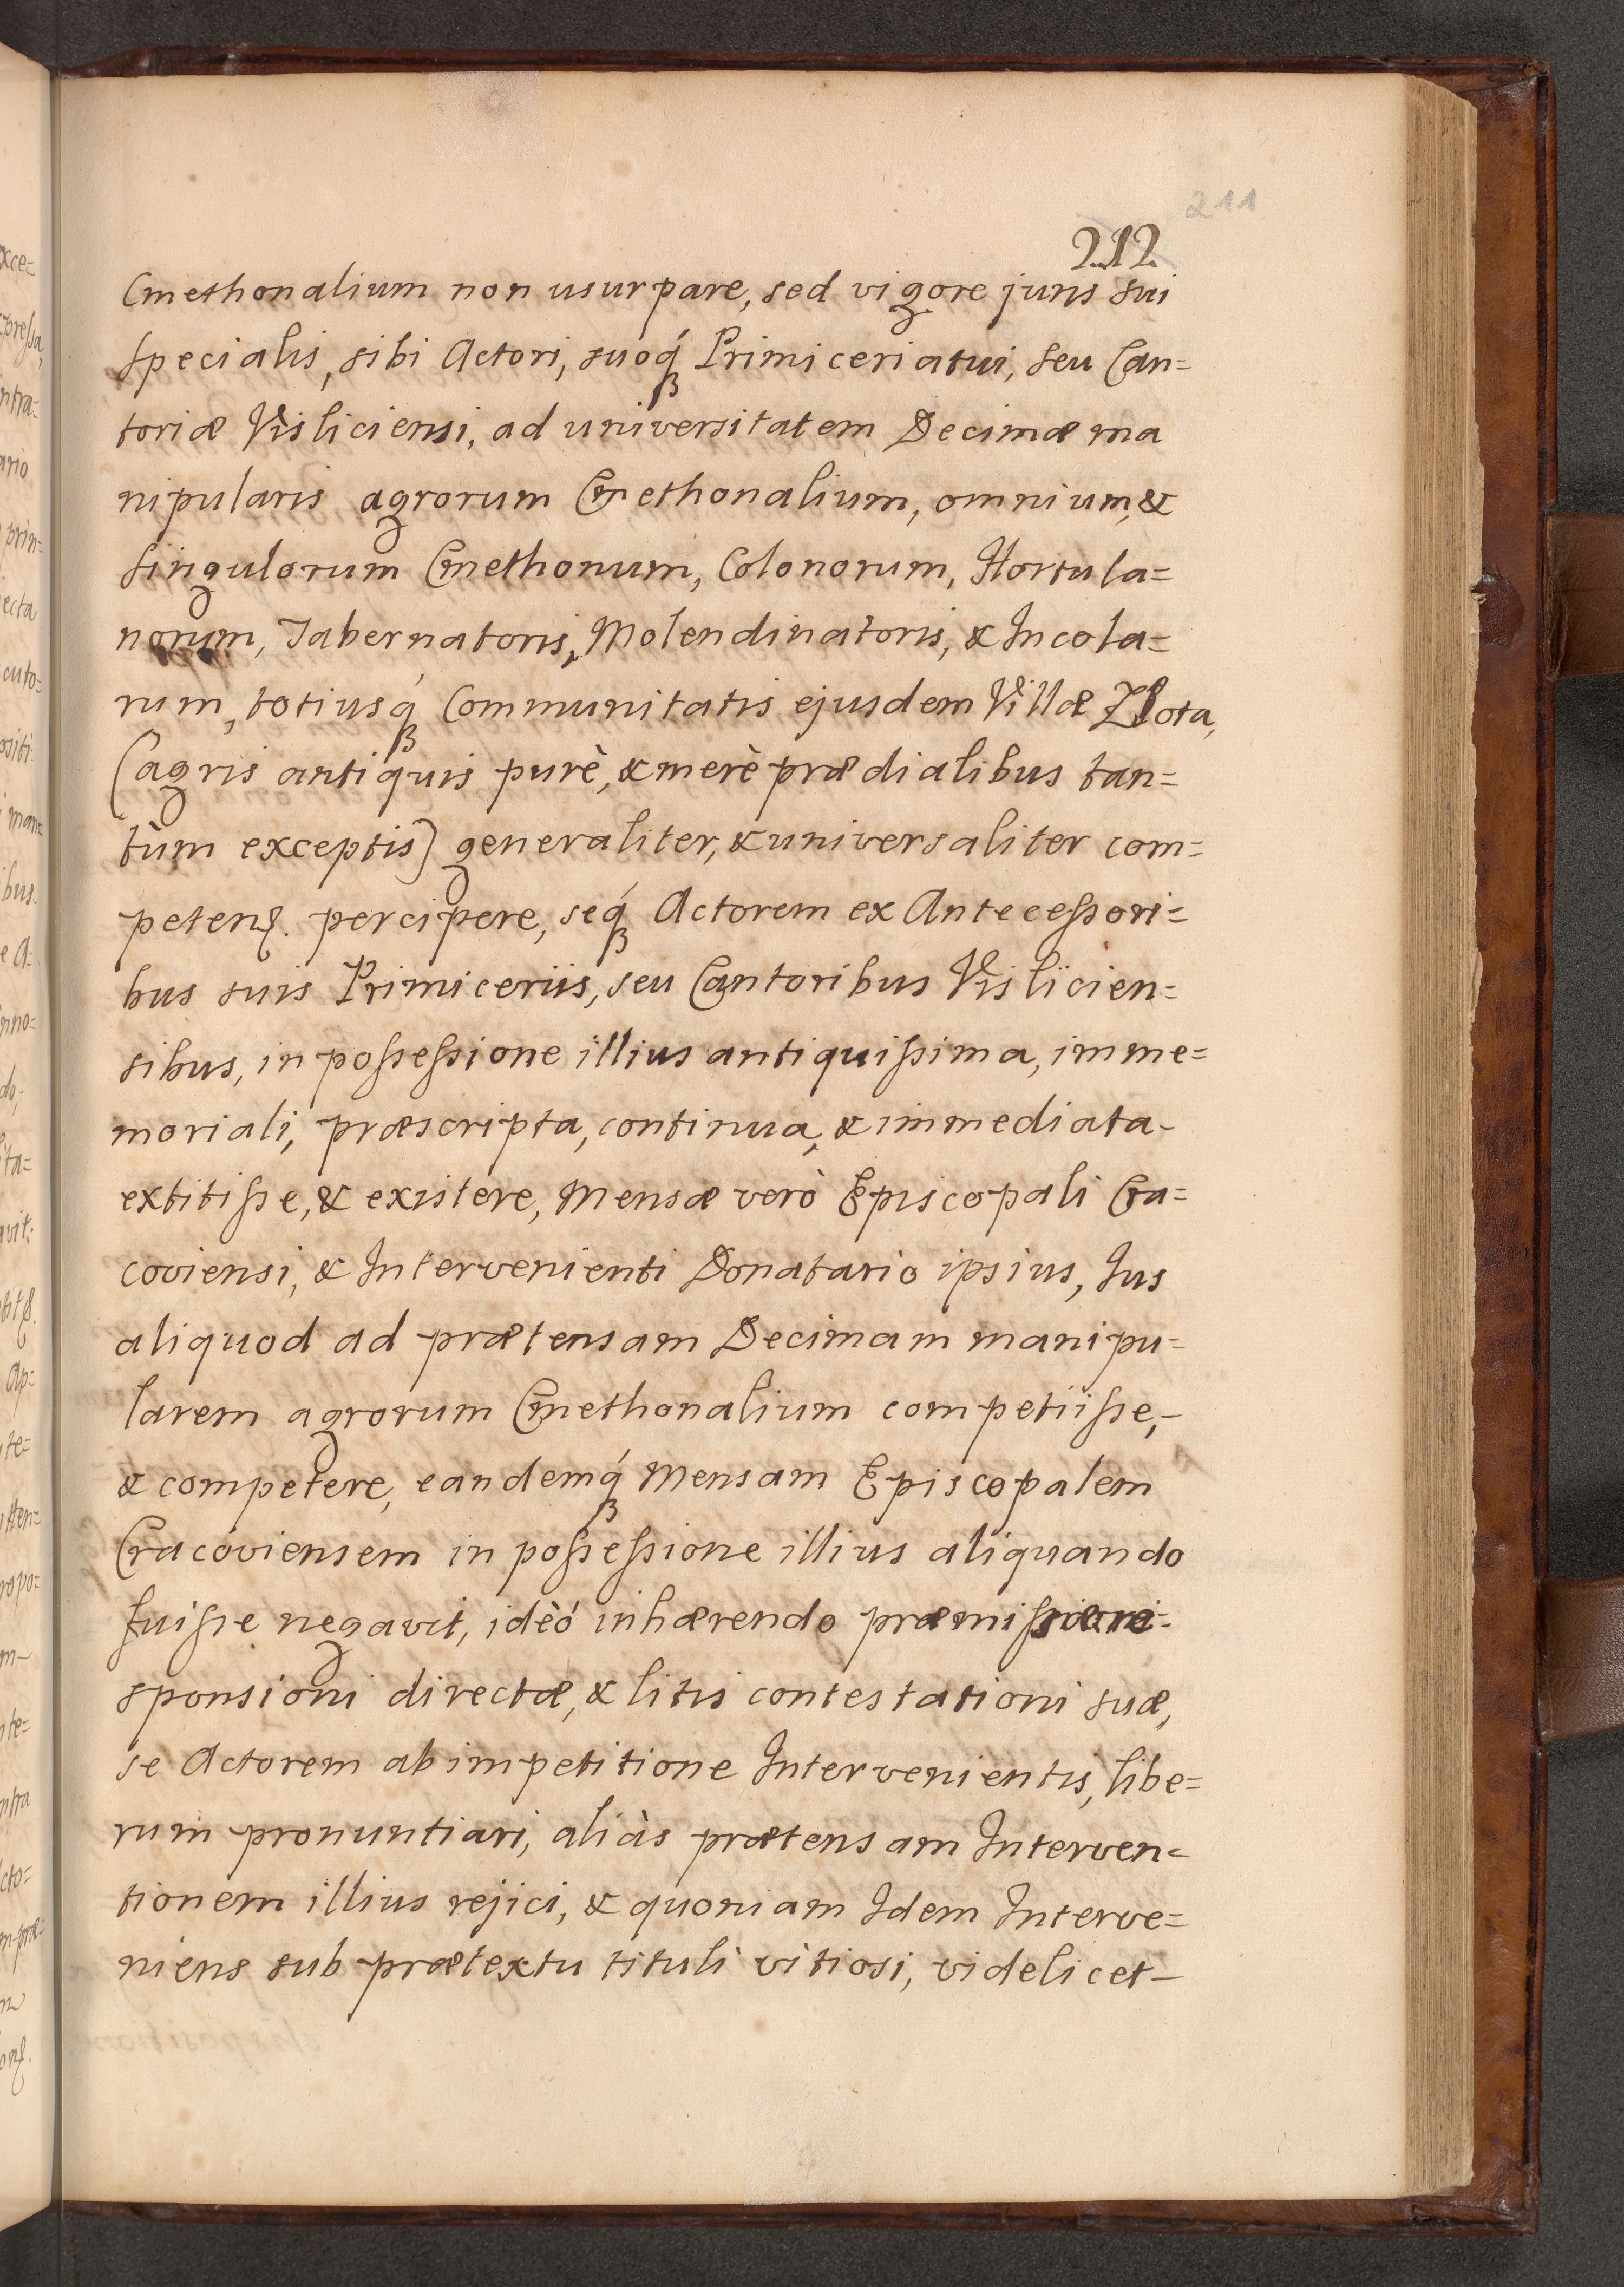 211
212
Cmethonalium non usurpare, sed vigore juris sui
specialis, sibi Actori, suoq́ꝫ Primiceriatui, seu Can=
toriæ Visliciensi, ad universitatem Decimæ ma
nipularis agrorum Cmethonalium, omnium, &
singulorum Cmethonum, Colonorum, Hortula=
norum, Tabernatoris, Molendinatoris, & Incola=
rum, totiusq́ꝫ Communitatis ejusdem Villæ Złota,
(agris antiquis purè, & merè prædialibus tan=
tùm exceptis) generaliter, & universaliter com=
petenꝭ. percipere, seq́ꝫ Actorem ex Antecessori=
bus suis Primiceriis, seu Cantoribus Vislicien=
sibus, in possessione illius antiquissima, imme=
moriali, præscripta, continua, & immediata-
extitisse, & existere, Mensæ verò Episcopali Cra=
coviensi, & Intervenienti Donatario ipsius, Jus
aliquod ad prætensam Decimam manipu=
larem agrorum Cmethonalium competiisse,-
& competere, eandemq́ꝫ Mensam Episcopalem
Cracoviensem in possessione illius aliquando
fuisse negavit, idèó inhærendo præmissæ re=
sponsioni directæ, & litis contestationi suæ,
se Actorem ab impetitione Intervenientis, libe=
rum pronuntiari, aliàs prætensam Interven=
tionem illius rejici, & quoniam Idem Interve=
niens sub prætextu tituli vitiosi, videlicet-